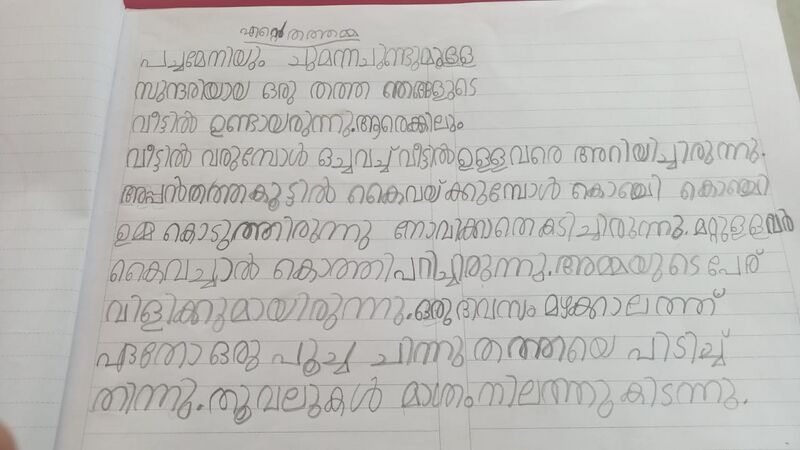 എന്റെ തത്തമ്മ
പച്ചമേനിയും ചുമന്നചുണ്ടുമുള്ള
സുന്ദരിയായ ഒരു തത്ത ഞങ്ങളുടെ
വീട്ടിൽ ഉണ്ടായരുന്നു. ആരെങ്കിലും
വീട്ടിൽ വരുമ്പോൾ ഒച്ചവച്ച് വീട്ടിൽ ഉള്ളവരെ അറിയിച്ചിരുന്നു.
അപ്പൻതത്തകൂട്ടിൽ കൈവയ്ക്കുമ്പോൾ കൊഞ്ചി കൊഞ്ചി
ഉമ്മ കൊടുത്തിരുന്നു നോവിക്കാതെ കടിച്ചിരുന്നു. മറ്റുള്ളവർ
കൈവച്ചാൽ കൊത്തിപറിച്ചിരുന്നു. അമ്മയുടെ പേര്
വിളിക്കുമായിരുന്നു. ഒരു ദിവസം മഴക്കാലത്ത്
ഏതോ ഒരു പൂച്ച തത്തയെ പിടിച്ച്
തിന്നു. തൂവലുകൾ മാത്രം നിലത്തു കിടന്നു.